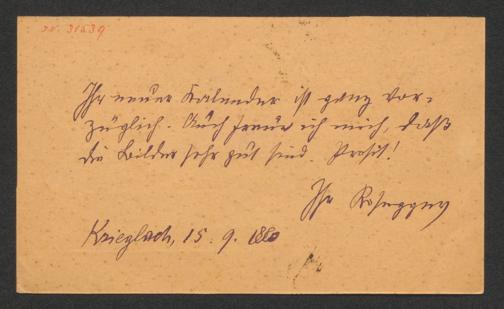 Nr. 31539
Ihr neuer Kalender ist ganz vor-
züglich. Auch freue ich mich, daß
die Bilder sehr gut sind. Prosit!
Ihr Rosegger
Krieglach, 15. 9. 1880